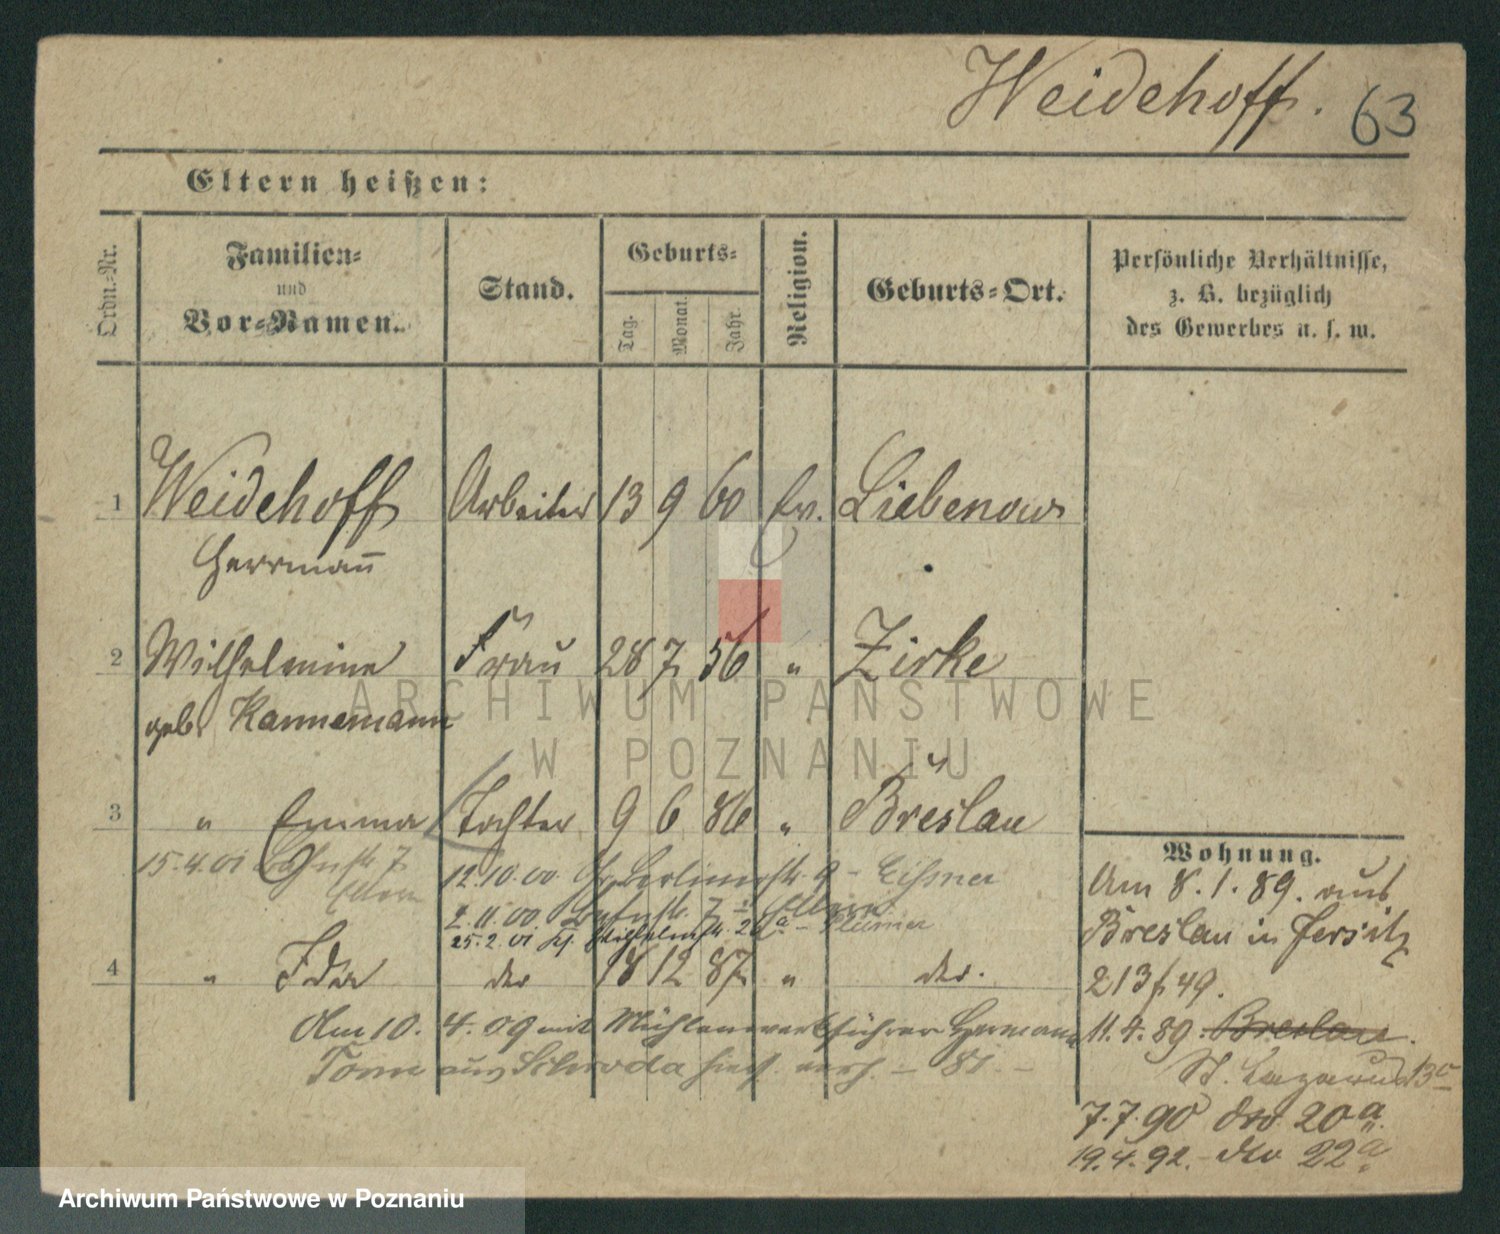 Weidehoff. 63
Eltern heißen:
Ordn.-Nr.
Familien-
und
Vor-Namen.
Stand.
Geburts-
Tag.
Monat.
Jahr.
Religion.
Geburts-Ort.
Persönliche Verhältnisse,
z. B. bezüglich
des Gewerbes u. s. w.
1 Weidehoff Arbeiter 13 9 60 Ev. Liebenow
Herrmann̄
2 Wilhelmine Frau 28 7 56 " Zirke
geb. Kannemann
3 " Emma Tochter 9 6 86 " Breslau
15.4.01 7
Eltern
12.10.00 Berlinerstr. 9 -
2.11.00 7 Eltern
25.2.01 Wilhelmstr.
4 " Ida 18 12 87 "
Am 10. 4. 09 mit Mühlenwerkführer Hermann
aus Schroda
Wohnung.
Am 8.1.89. aus
Breslau in Jersitz
213 49.
11.4.89. Breslau.
St. Lazarus
7.7.90 dto 20a.
19.4.92. dto 22a.
ARCHIWUM PAŃSTWOWE
W POZNANIU
Archiwum Państwowe w Poznaniu